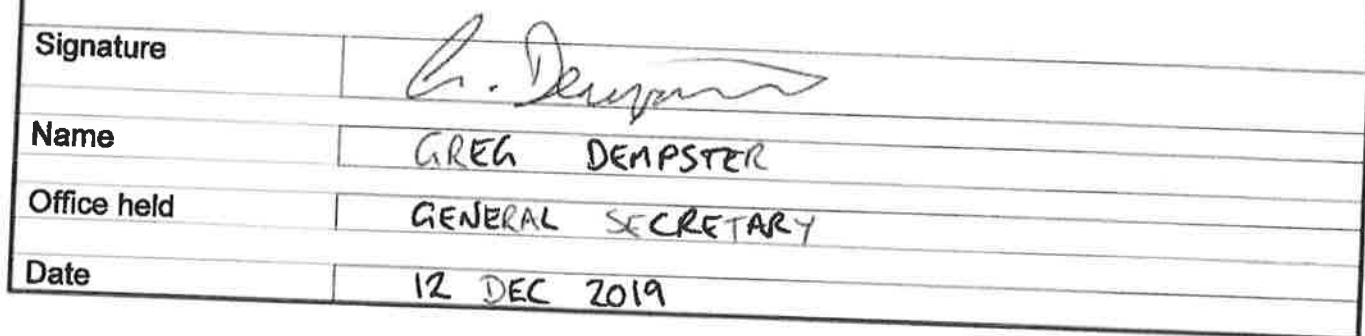 Signature G. Dempster
Name GREG DEMPSTER
Office held GENERAL SECRETARY
Date 12 DEC 2019